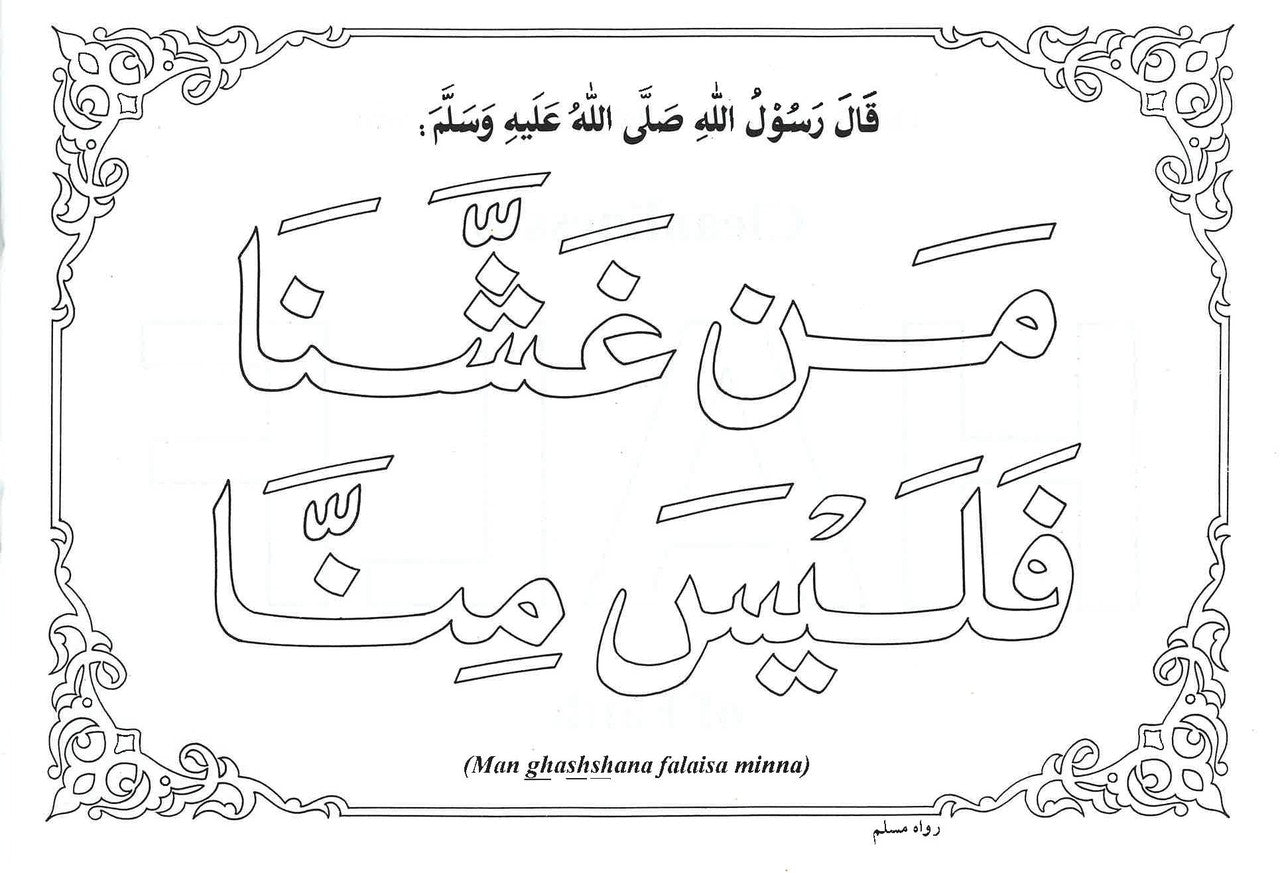 قَالَ رَسُوْلُ اللّٰهِ صَلَّى اللّٰهُ عَلَيهِ وَسَلَّمَ:
مَن غَشَّنَا
فَلَيْسَ مِنَّا
(Man ghashshana falaisa minna)
رواه مسلم